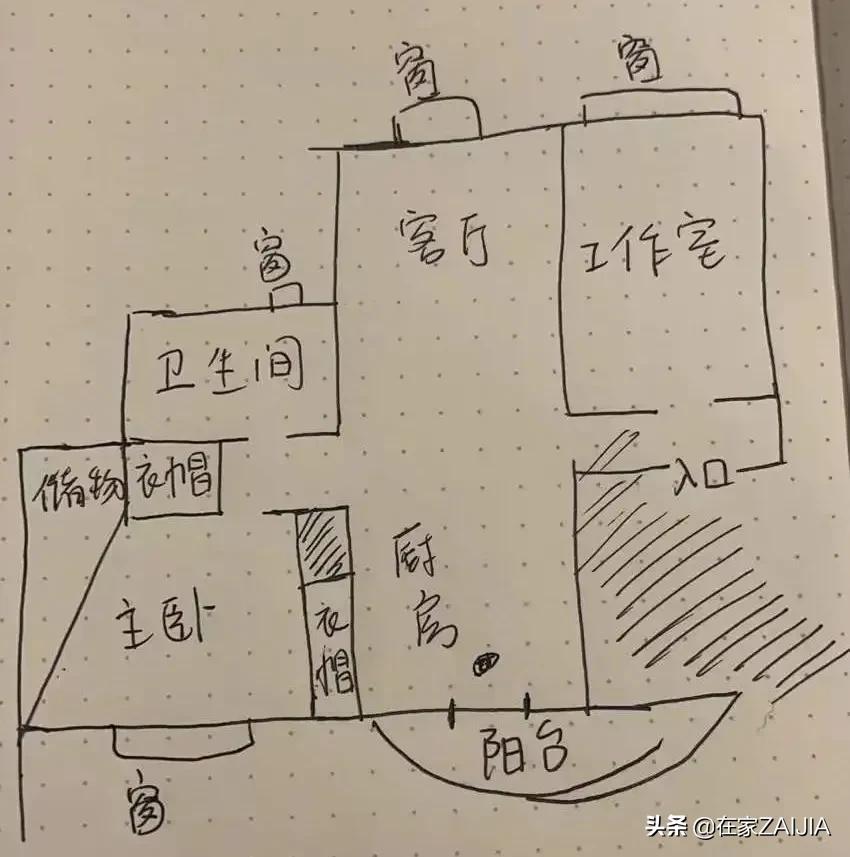 窗
窗
客厅
工作室
窗
卫生间
储物
衣帽
入口
厨房
主卧
衣帽
阳台
窗
头条 @在家ZAIJIA